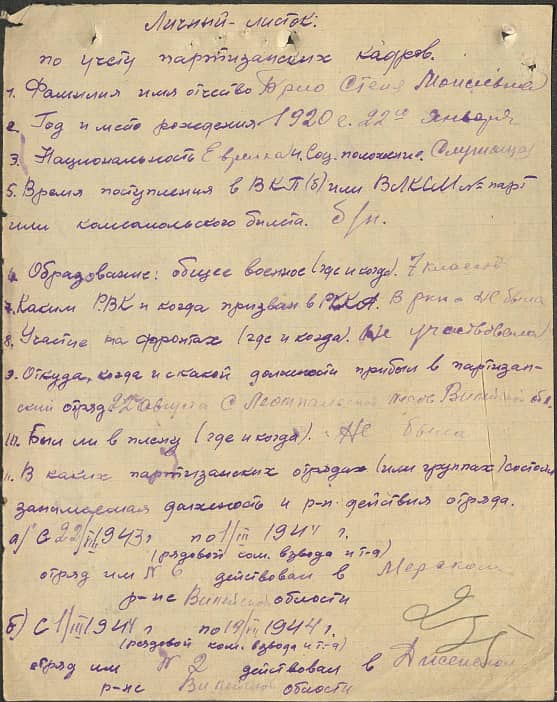 Личный-листок:
по учету партизанских кадров.
1. Фамилия имя отчество Брио Стеня Моисеевна
2. Год и место рождения 1920 г. 22го января
3. Национальность Еврейка 4. Соц. положение. Служащая
5. Время поступления в ВКП(б) или ВЛКСМ № парт
или комсомольского билета. б/п.
6. Образование: общее военное (где и когда). 7 классов
7. Каким РВК и когда призван в РККА. В ркка не была
8. Участие на фронтах (где и когда). не участвовала
9. Откуда, когда и с какой должности прибыл в партизан-
ский отряд 22 августа с Вилейской обл.
10. Был ли в плену (где и когда). не была
11. В каких партизанских отрядах (или группах) состоял
занимаемая должность и р-н действия отряда.
а) С 22/VIII 1943 г. по 1/III 1944 г.
(рядовой ком. взвода и т-д)
отряд им N 6 действовал в Мерском
р-не Вилейской области
б) С 1/III 1944 г по 19/VII 1944 г.
(рядовой ком. взвода и т-д)
отряд им N 2 действовал в Дисенском
р-не Вилейской области